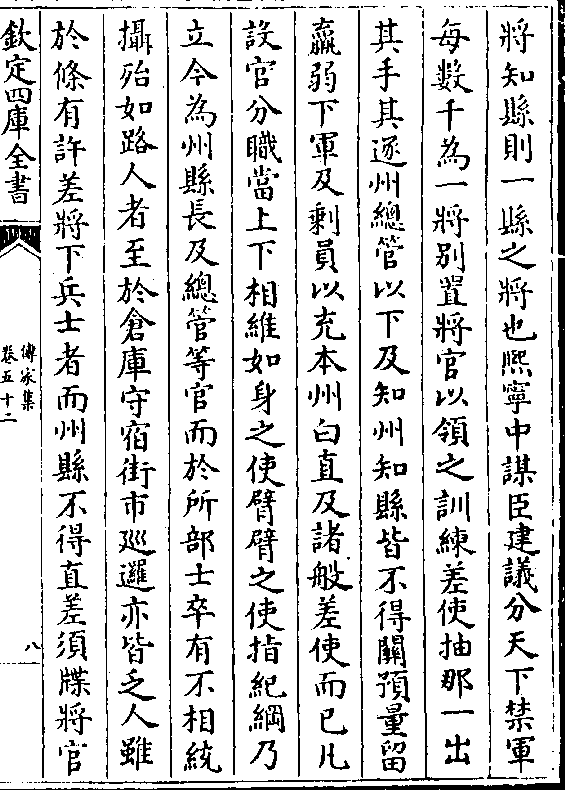 將知縣則一縣之將也熈寧中謀臣建議分天下禁軍
每數千為一將别置將官以領之訓練差使抽那一出
其手其逐州總管以下及知州知縣皆不得關預量留
羸弱下軍及剩員以充本州白直及諸般差使而已凡
設官分職當上下相維如身之使臂臂之使指紀綱乃
立今為州縣長及總管等官而於所部士卒有不相統
攝殆如路人者至於倉庫守宿街市廵邏亦皆乏人雖
於條有許差將下兵士者而州縣不得直差須牒將官
欽定四庫全書
傳家集
卷五十二
八